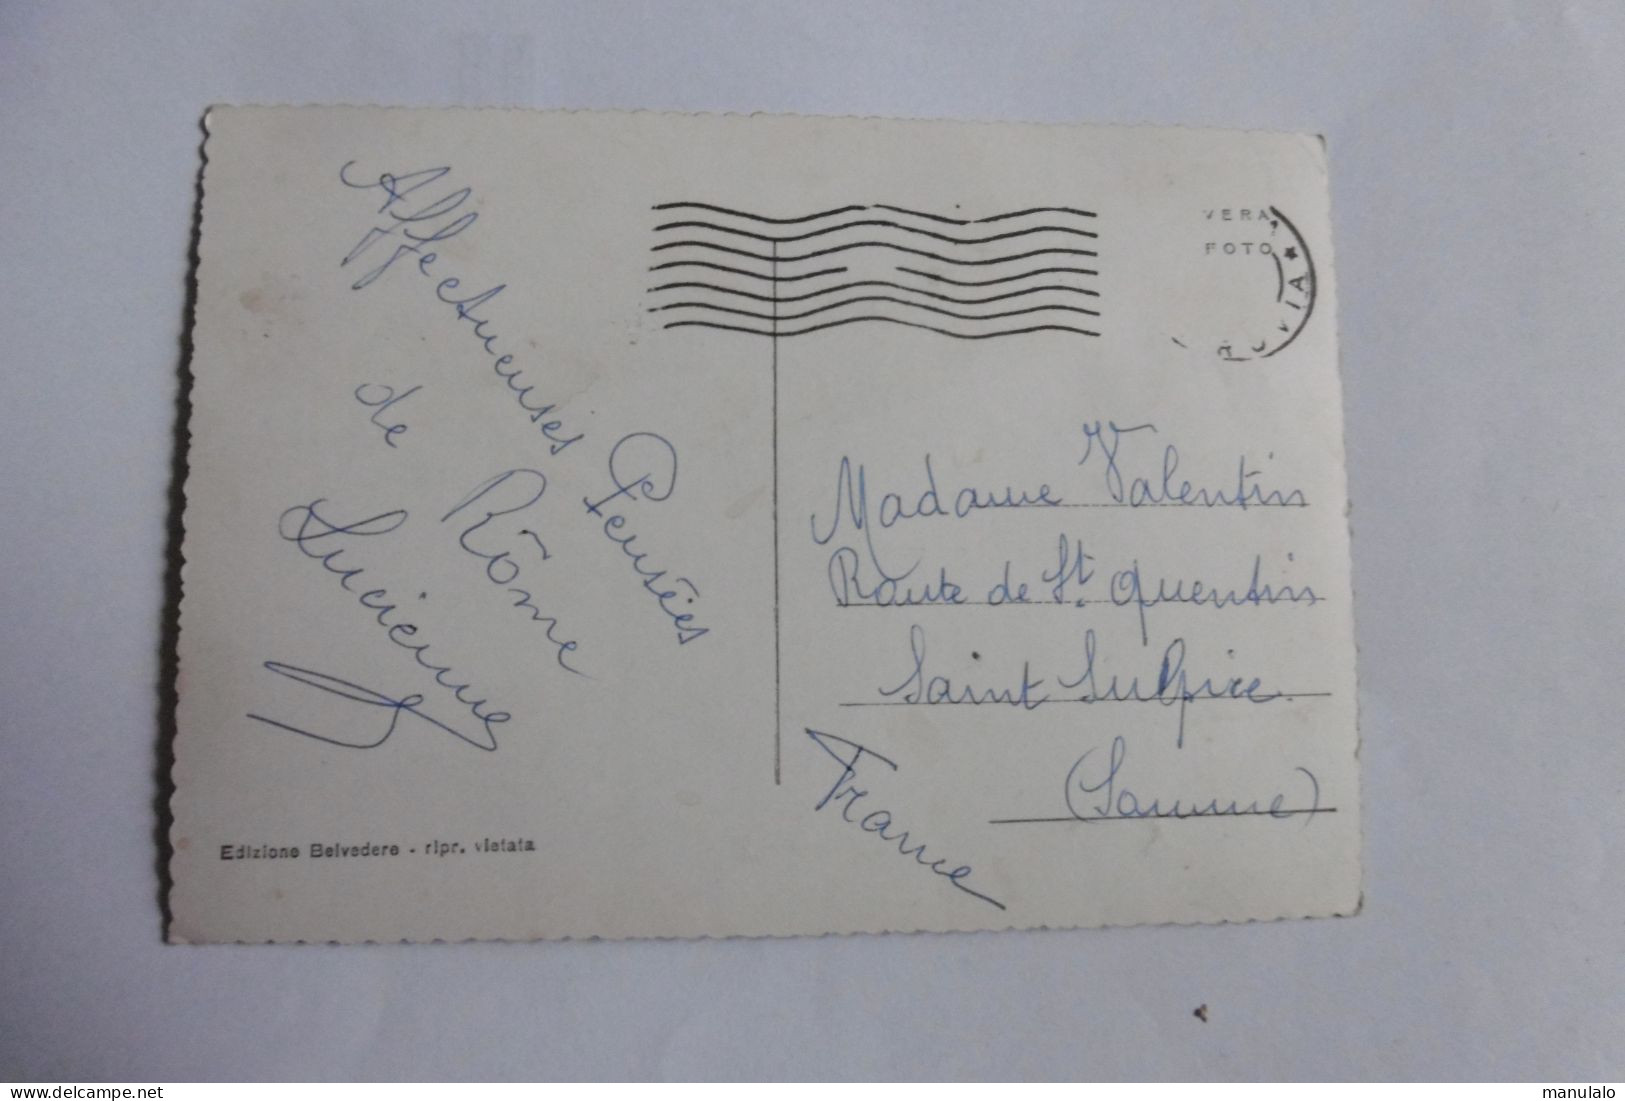 Affectueuses Pensées
de Rôme
Lucienne
VERA
FOTO
Madame Valentin
Route de St. Quentin
Saint Sulpice
(Somme)
France
Edizione Belvedere - ripr. vietata
delcampe.net
manulalo